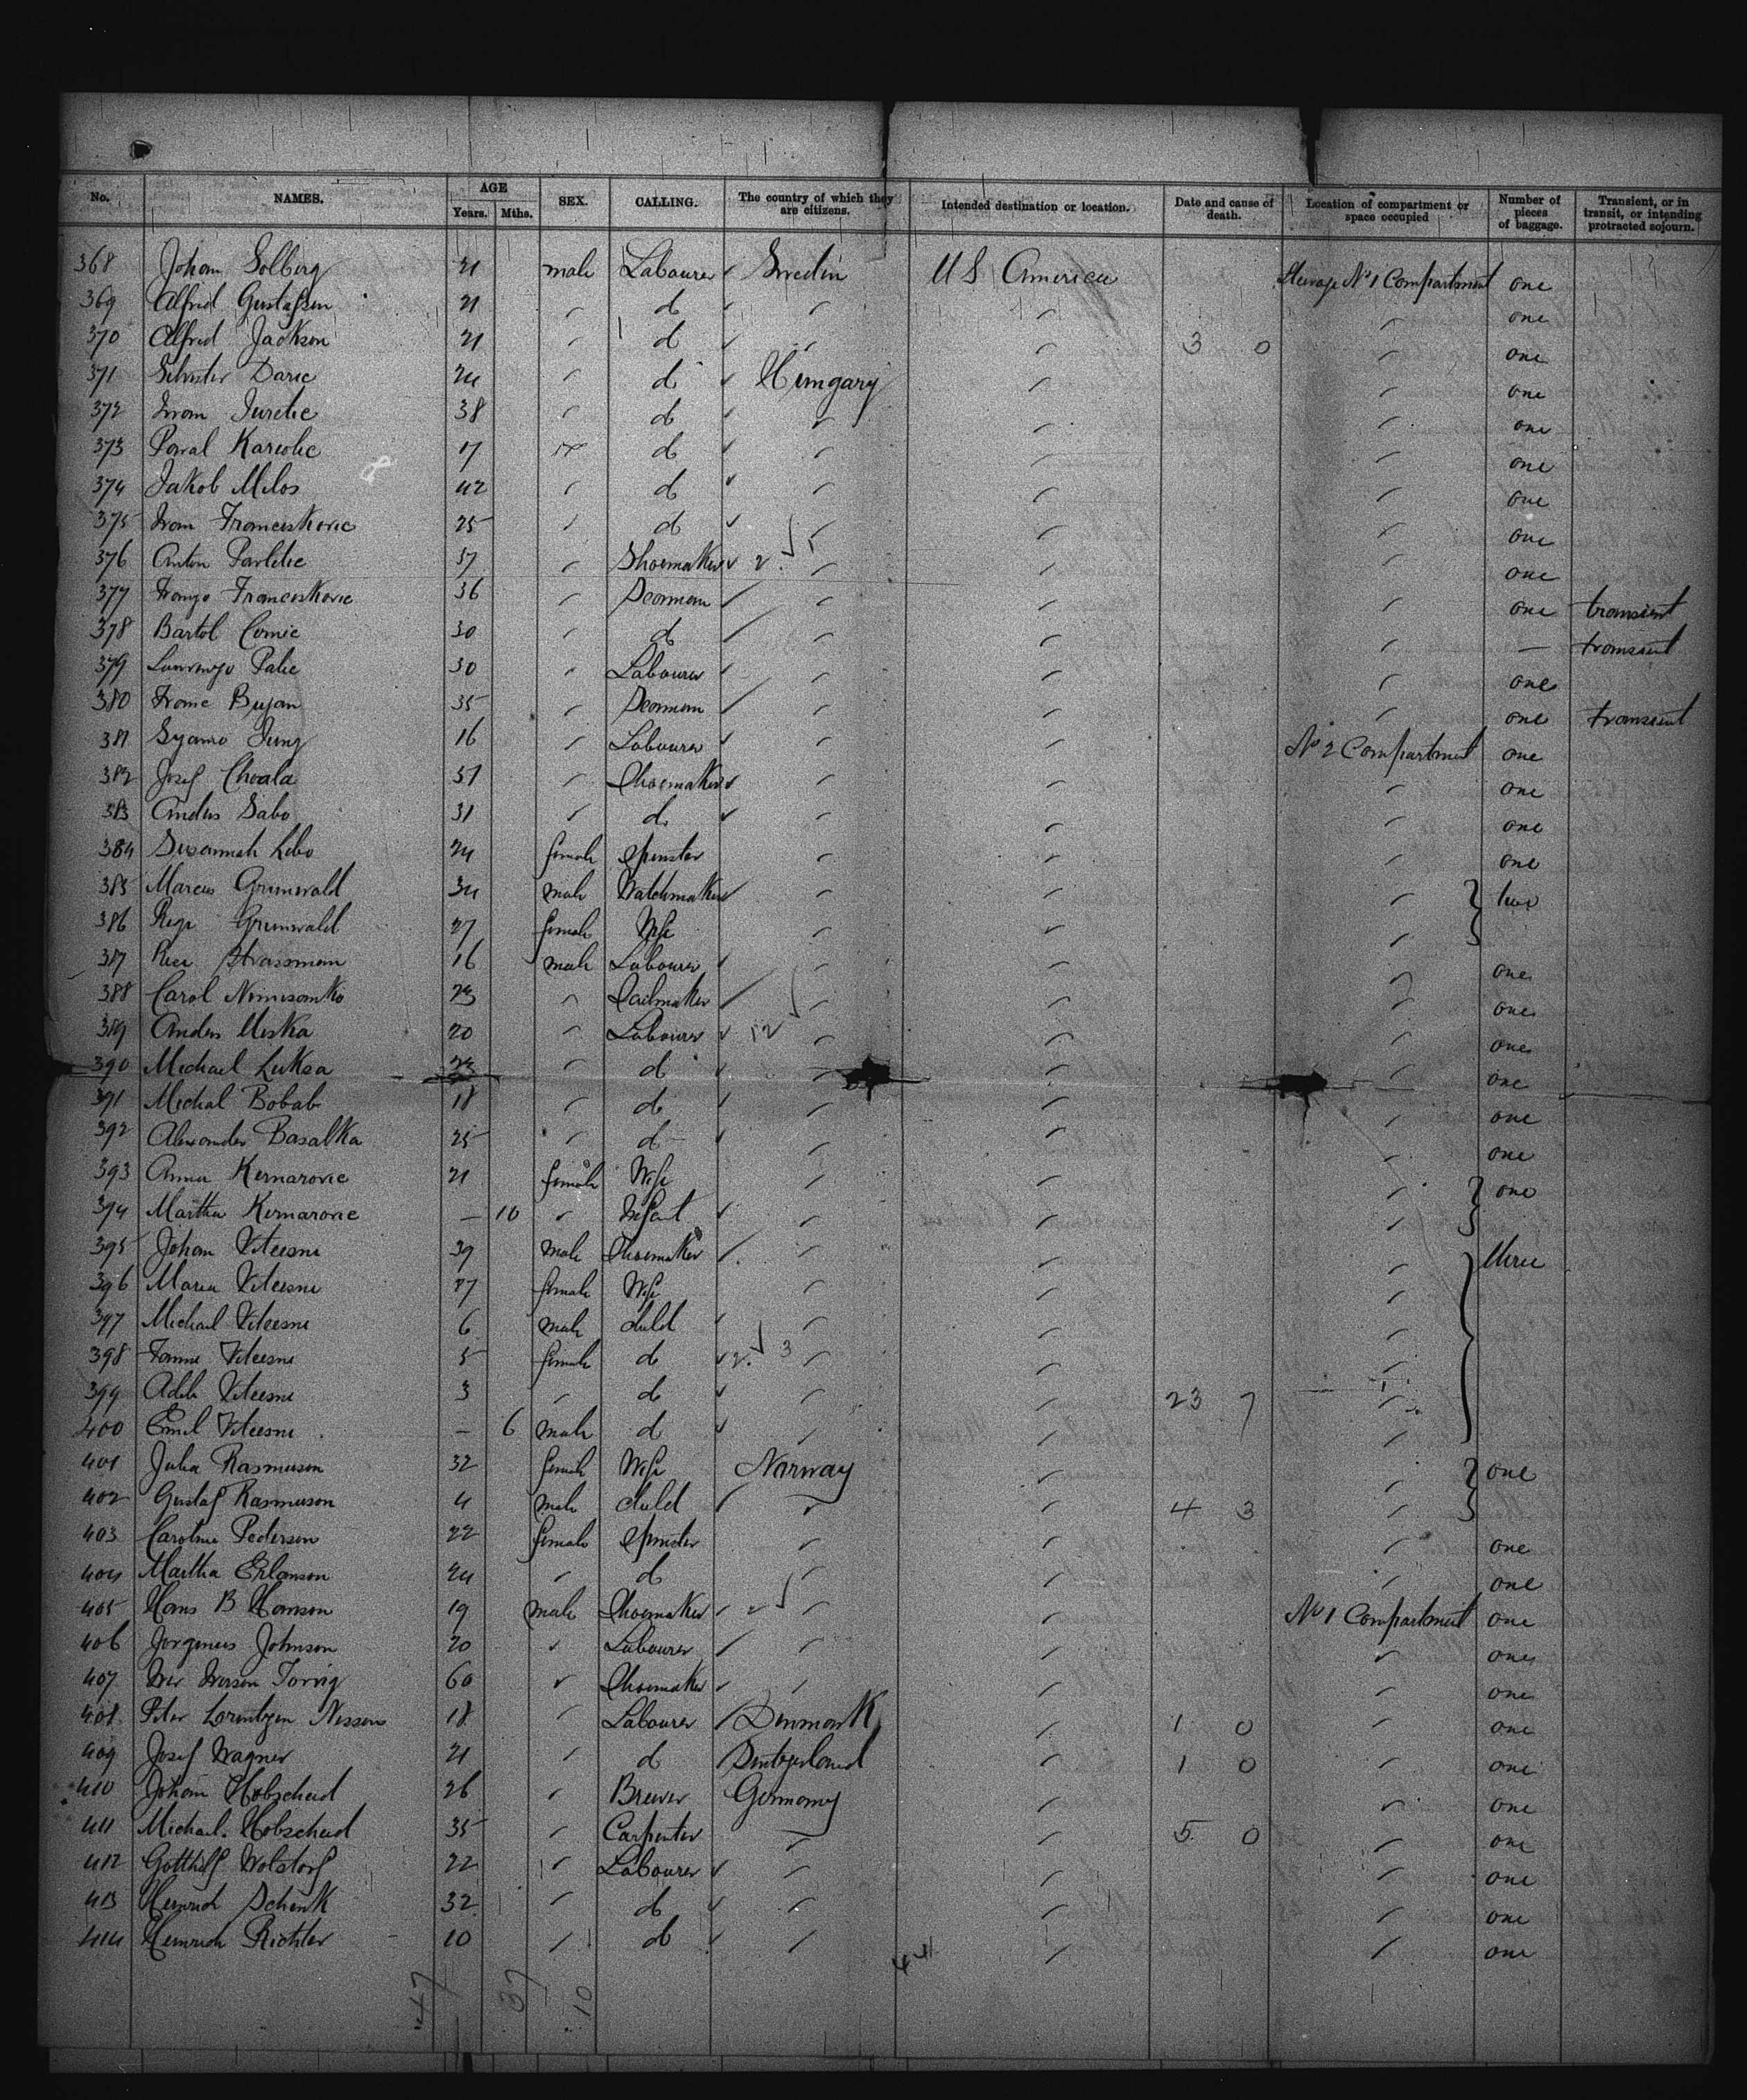 No. NAMES. AGE Years. Mths. SEX. CALLING. The country of which they are citizens. Intended destination or location. Date and cause of death. Location of compartment or space occupied Number of pieces of baggage. Transient, or in transit, or intending protracted sojourn.
368 Johan Solberg 21 male Labourer Sweden U S America Steerage No 1 Compartment one
369 Alfred Gustafson 21 do one
370 Alfred Jackson 21 do 3 0 one
371 Silvester Daric 24 do Hungary one
372 Ivan Juretic 38 do one
373 17 do one
374 Jakob Milos 42 do one
375 Ivan Franciskovic 25 do one
376 Anton Pavletic 37 Shoemaker one
377 Franjo Franciskovic 36 Seaman one transient
378 Bartol Comic 30 do — transient
379 Palic 30 Labourer one
380 Frane Bujan 35 Seaman one transient
381 Jung 16 Labourer No 2 Compartment one
382 Josef Chvala 31 Shoemaker one
383 Andus Sabo 31 do one
384 Susannah Lebo 24 female Spinster one
385 Marcus Grunwald 34 male Watchmaker two
386 Regi Grunwald 27 female Wife
387 Strassman 16 male Labourer one
388 Carol 23 Sailmaker one
389 Andus Miska 20 Labourer 12 one
390 Michael Luksa 23 do one
391 Michal Bobab 18 do one
392 Alexander Basalka 25 do one
393 Anna Kernarovic 21 female Wife one
394 Martha Kernarovic — 10 Infant
395 Johan Vitecsni 39 male Shoemaker three
396 Maria Vitecsni 27 female Wife
397 Michael Vitecsni 6 male child
398 Fanni Vitecsni 5 female do 2 3
399 Adele Vitecsni 3 do 23 7
400 Emil Vitecsni — 6 male do
401 Julia Rasmuson 32 female Wife Norway one
402 Gustaf Rasmuson 4 male child 4 3
403 Caroline Pederson 22 female Spinster one
404 Martha Erlanson 24 do one
405 Hans B Hanson 19 male Shoemaker No 1 Compartment one
406 Jorgenus Johnson 20 Labourer one
407 Iver Iverson 60 Shoemaker one
408 Peter Lorentzen Nissen 18 Labourer Denmark 1 0 one
409 Josef Wagner 21 do Switzerland 1 0 one
410 Johann Hobscheid 26 Brewer Germany one
411 Michael Hobscheid 35 Carpenter 5 0 one
412 Gotthilf Wolstorf 22 Labourer one
413 Heinrich Schenk 32 do one
414 Heinrich Richter 10 do one
47 37 10 44